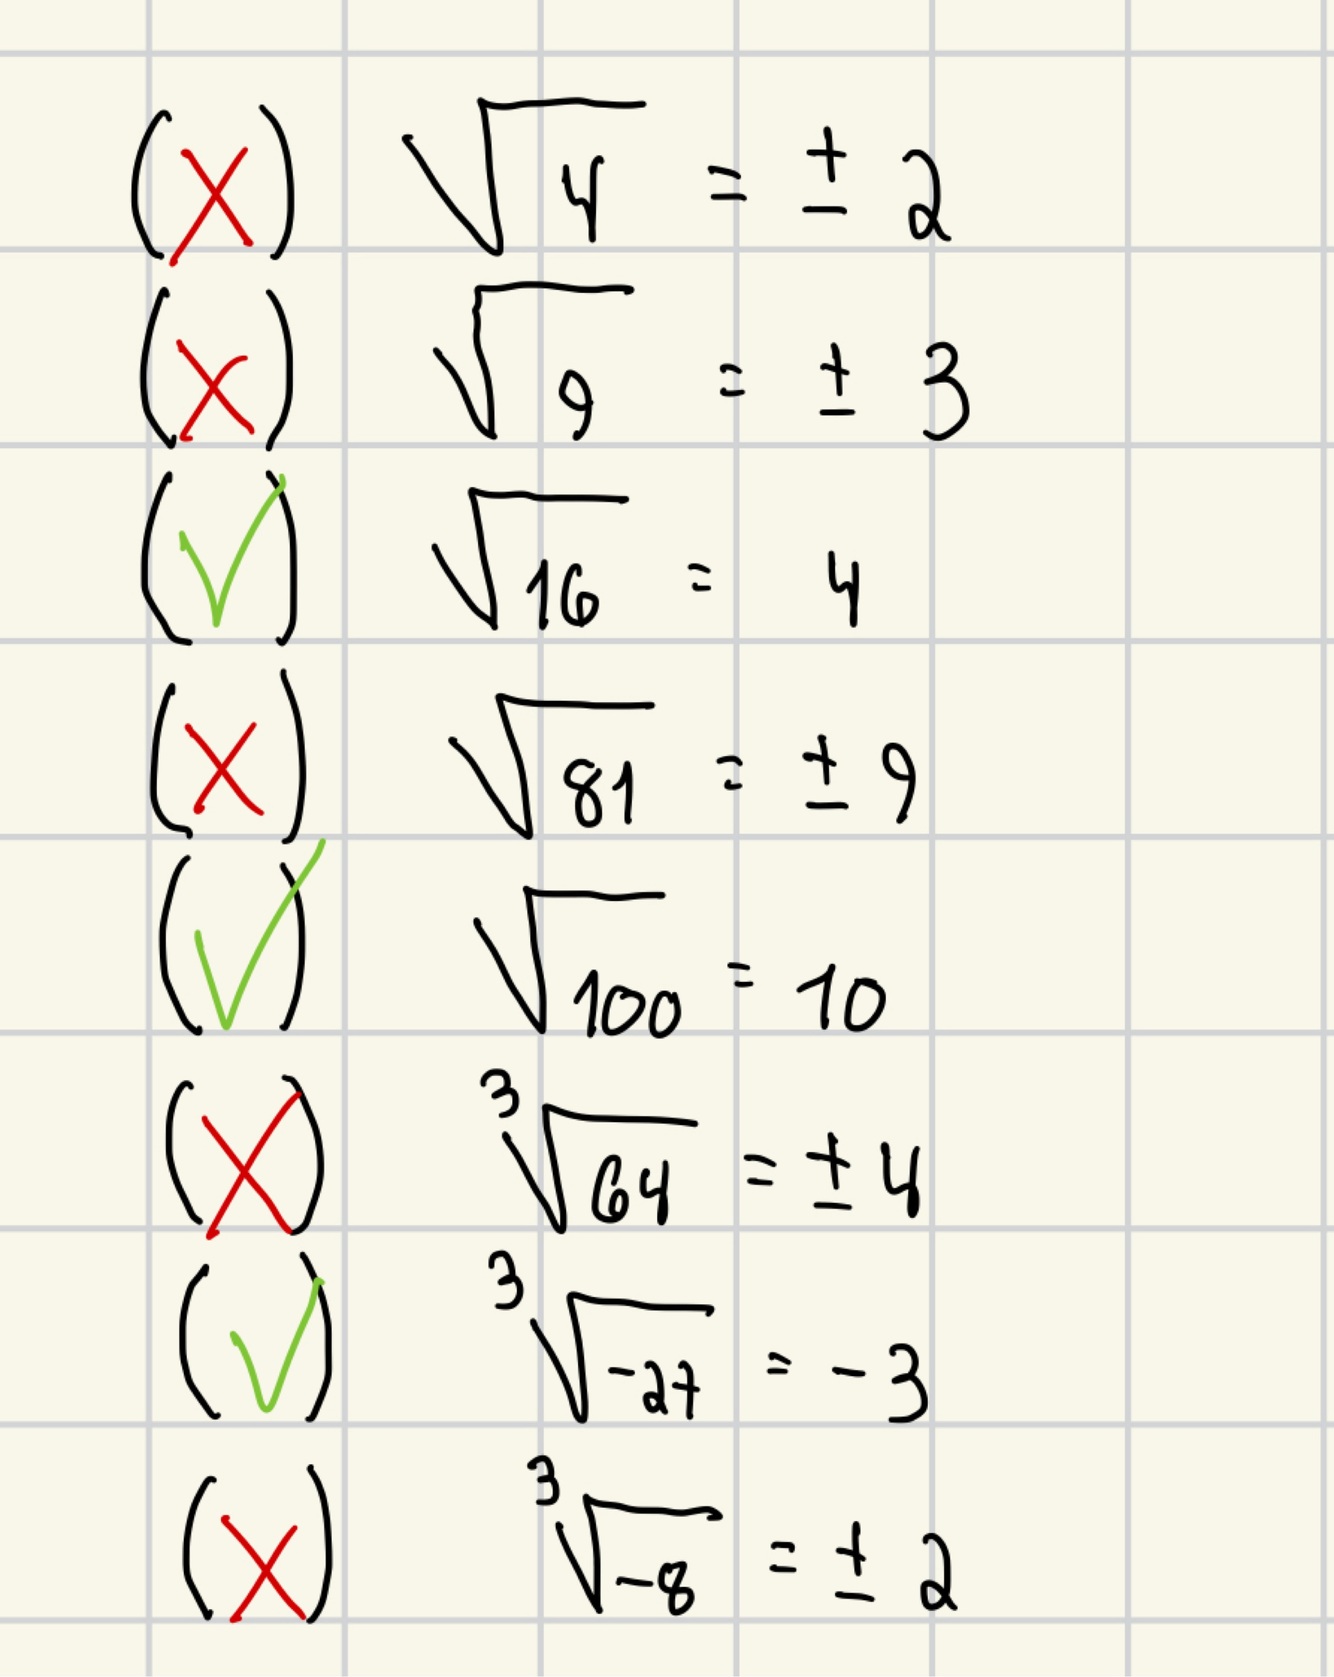 (✗) √4 = ± 2
(✗) √9 = ± 3
(✓) √16 = 4
(✗) √81 = ± 9
(✓) √100 = 10
(✗) ³√64 = ± 4
(✓) ³√-27 = -3
(✗) ³√-8 = ± 2